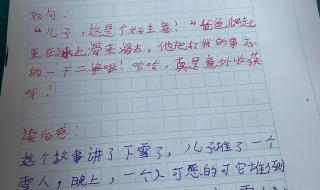 好句：
“儿子，这是个好主意！”爸爸爬起
来在冰上滑来滑去，他把打我的事忘
的一干二净啦！哈哈，真是意外收获
呀！
读后感：
这个故事讲了下雪了，儿子堆了一个
雪人，晚上，一个人可恶的可它堆到